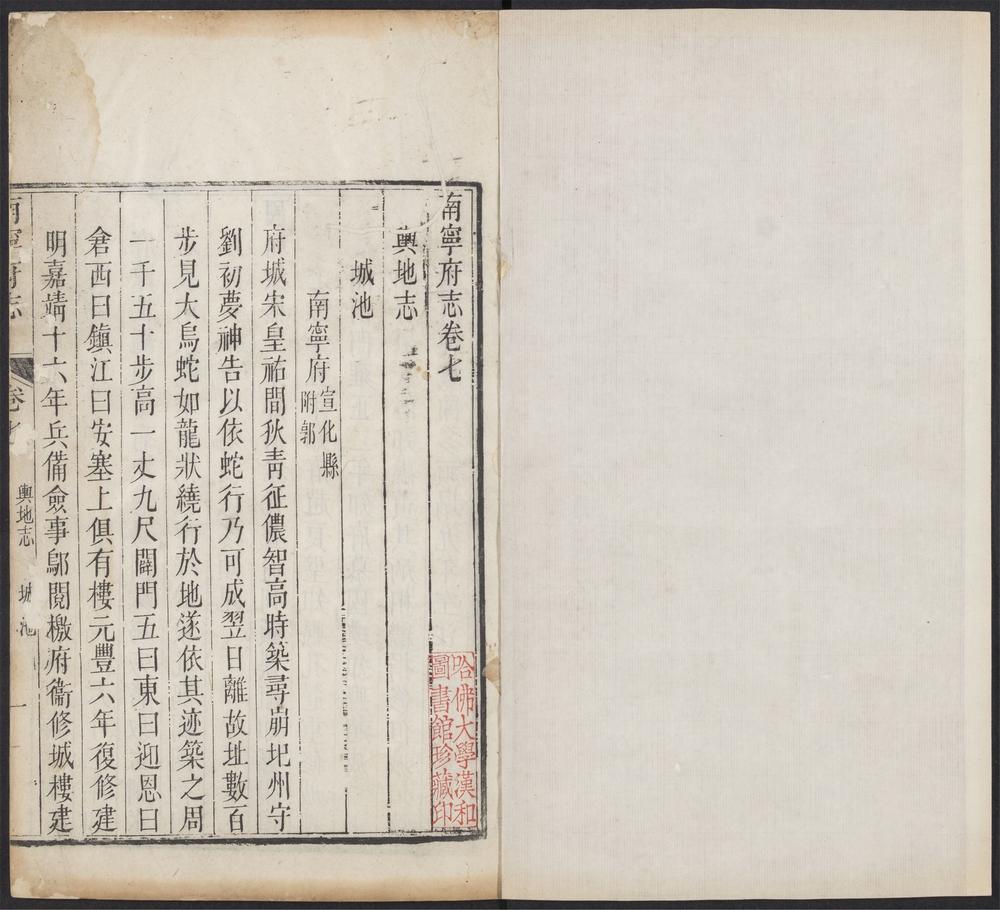 南寧府志卷七
輿地志
城池
南寧府宣化縣附郭
府城宋皇祐間狄青征儂智高時築尋崩圮州守
劉初夢神告以依蛇行乃可成翌日離故址數百
步見大烏蛇如龍狀繞行於地遂依其迹築之周
一千五十步高一丈九尺闢門五曰東曰迎恩曰
倉西曰鎮江曰安塞上俱有樓元豐六年復修建
明嘉靖十六年兵備僉事鄔閱檄府衞修城樓建
南寧府志 卷七 輿地志 城池 一
哈佛大學漢和
圖書館珍藏印